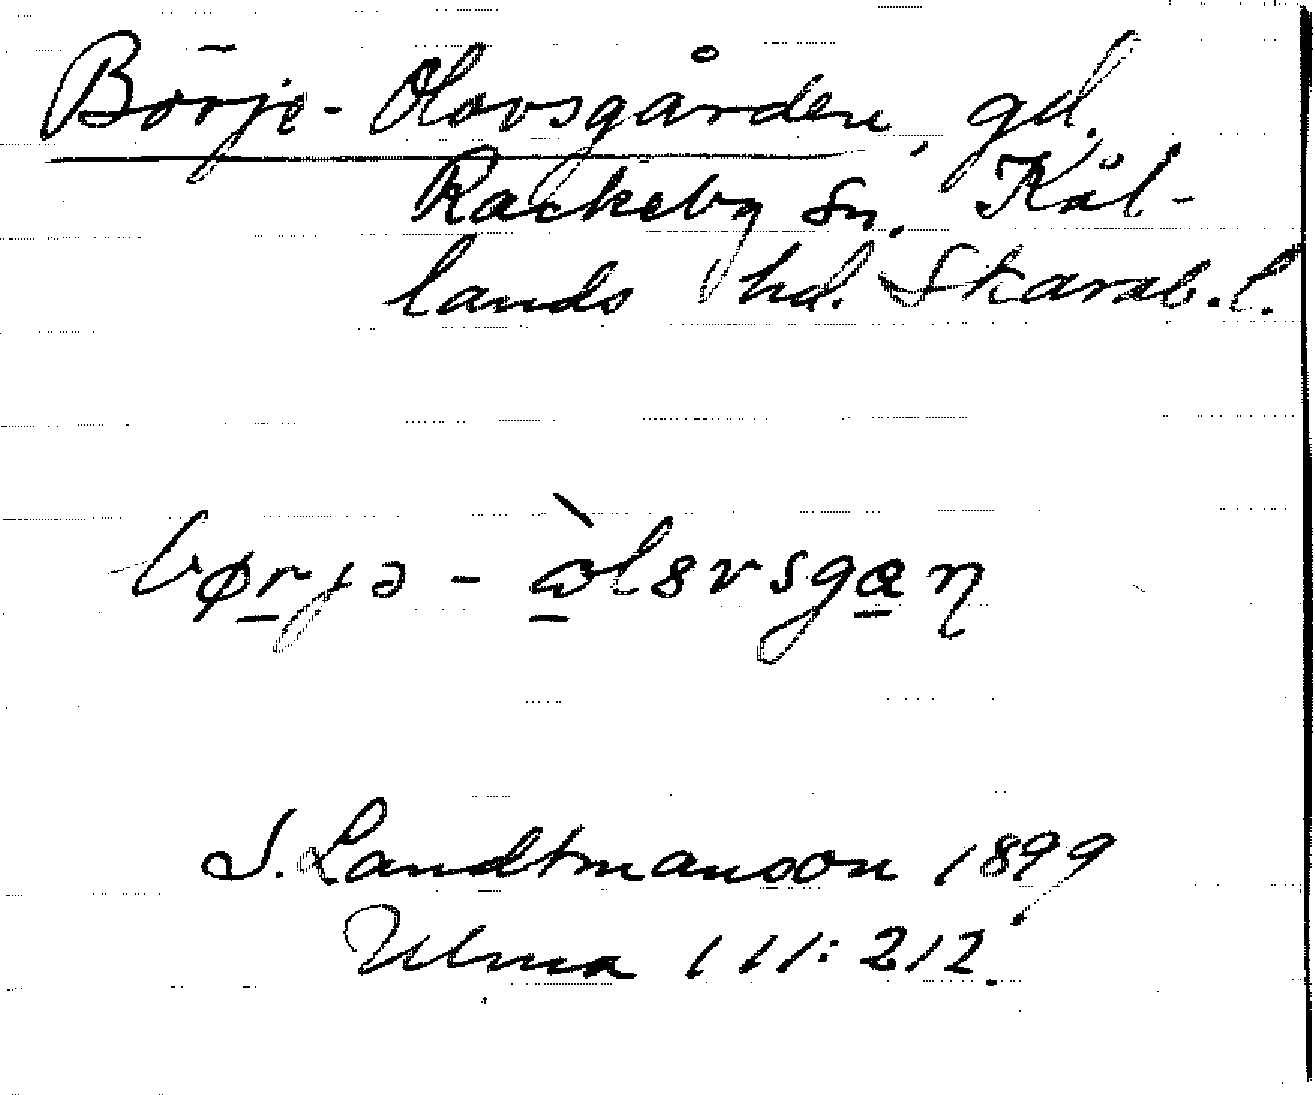 Börje-Olovsgården, gd.
Rackeby sn. Kål-
lands hd. Skarab.l.
bør̲jə - ò̲lɞvsga̲ɳ
S. Landtmanson 1899
Ulma 111:212.